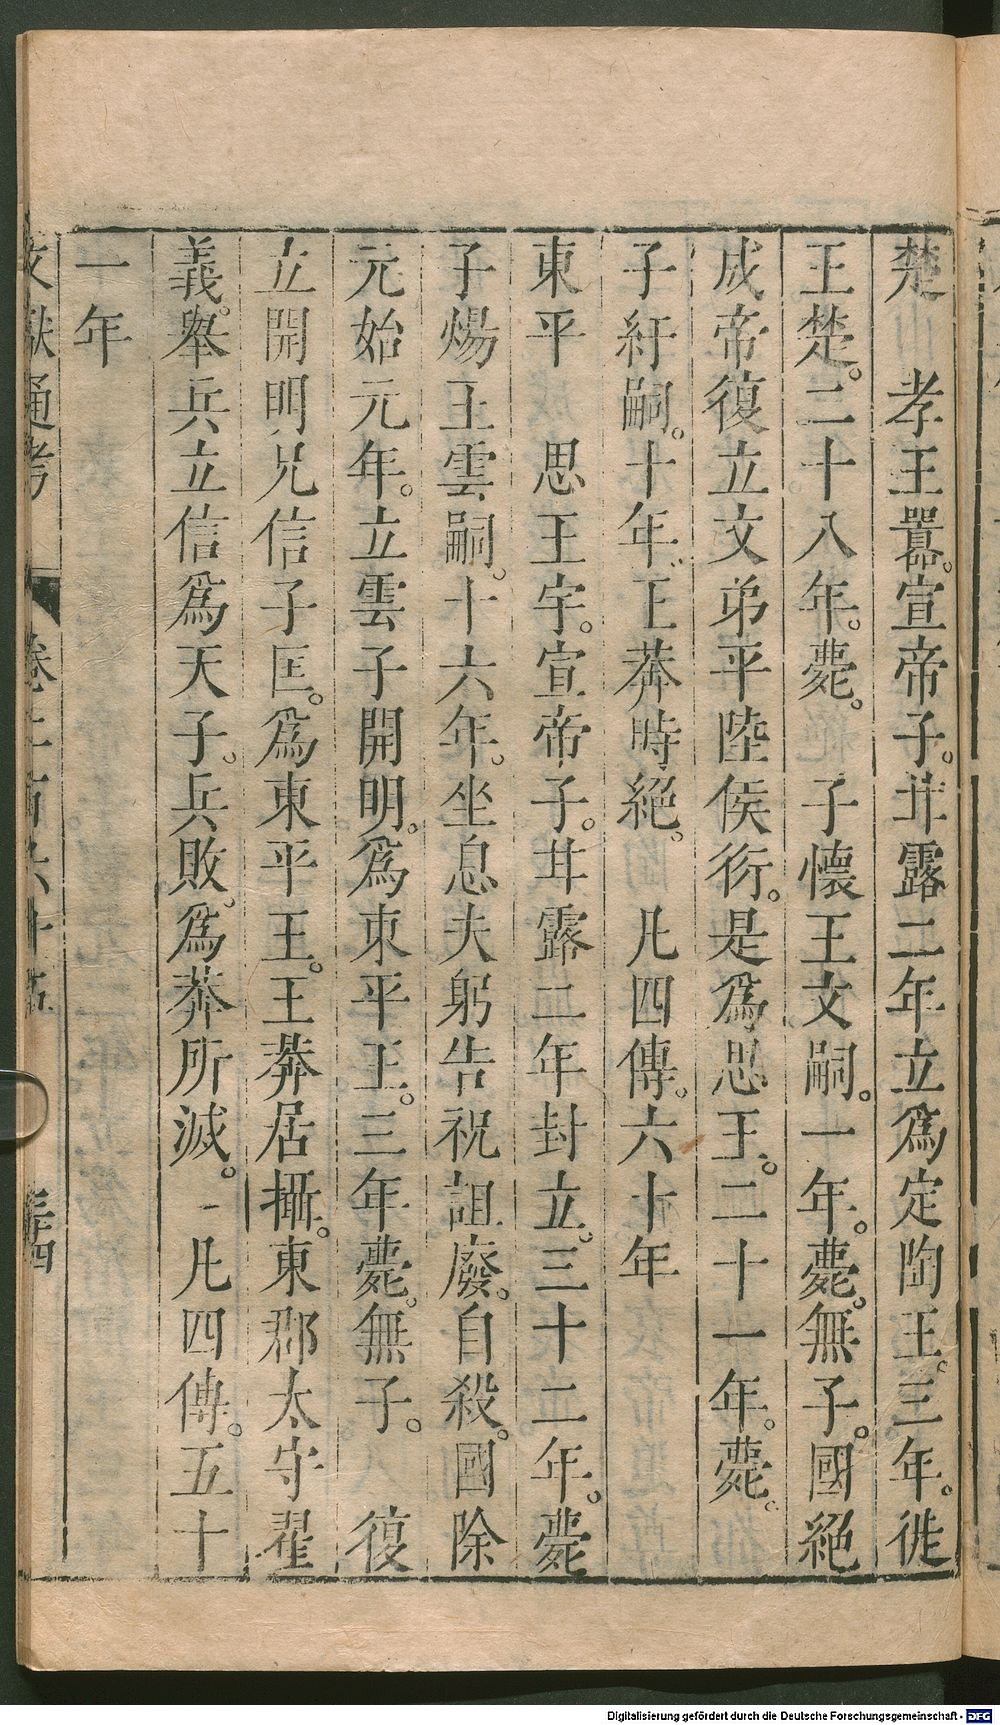 楚　孝王囂。宣帝子。甘露二年立爲定陶王。三年。徙
王楚。二十八年。薨。　子懷王文嗣。一年。薨。無子。國絕
成帝復立文弟平陸侯衍。是爲思王。二十一年。薨。
子紆嗣。十年。王莽時絕。　凡四傳。六十年
東平　思王宇。宣帝子。甘露二年封立。三十二年。薨
子煬王雲嗣。十六年。坐息夫躬告祝詛。廢。自殺。國除
元始元年。立雲子開明。爲東平王。三年薨。無子。　復
立開明兄信子匡。爲東平王。王莽居攝。東郡太守翟
義。舉兵立信爲天子。兵敗。爲莽所滅。　凡四傳。五十
一年
文獻通考　卷二百六十五　三十四
Digitalisierung gefördert durch die Deutsche Forschungsgemeinschaft - DFG